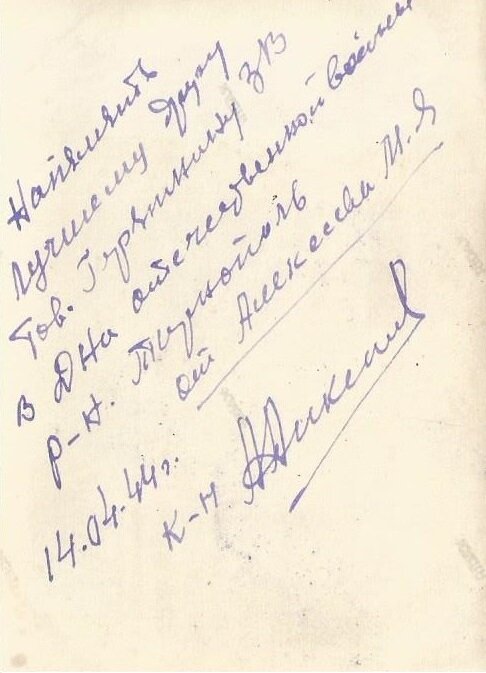 Напамять
лучшему другу
тов. Грязнину ЗВ
в дни отечественной войны
р-н. Тарнополь
от Алексеева М.Я
14.04.44г.
к-н.